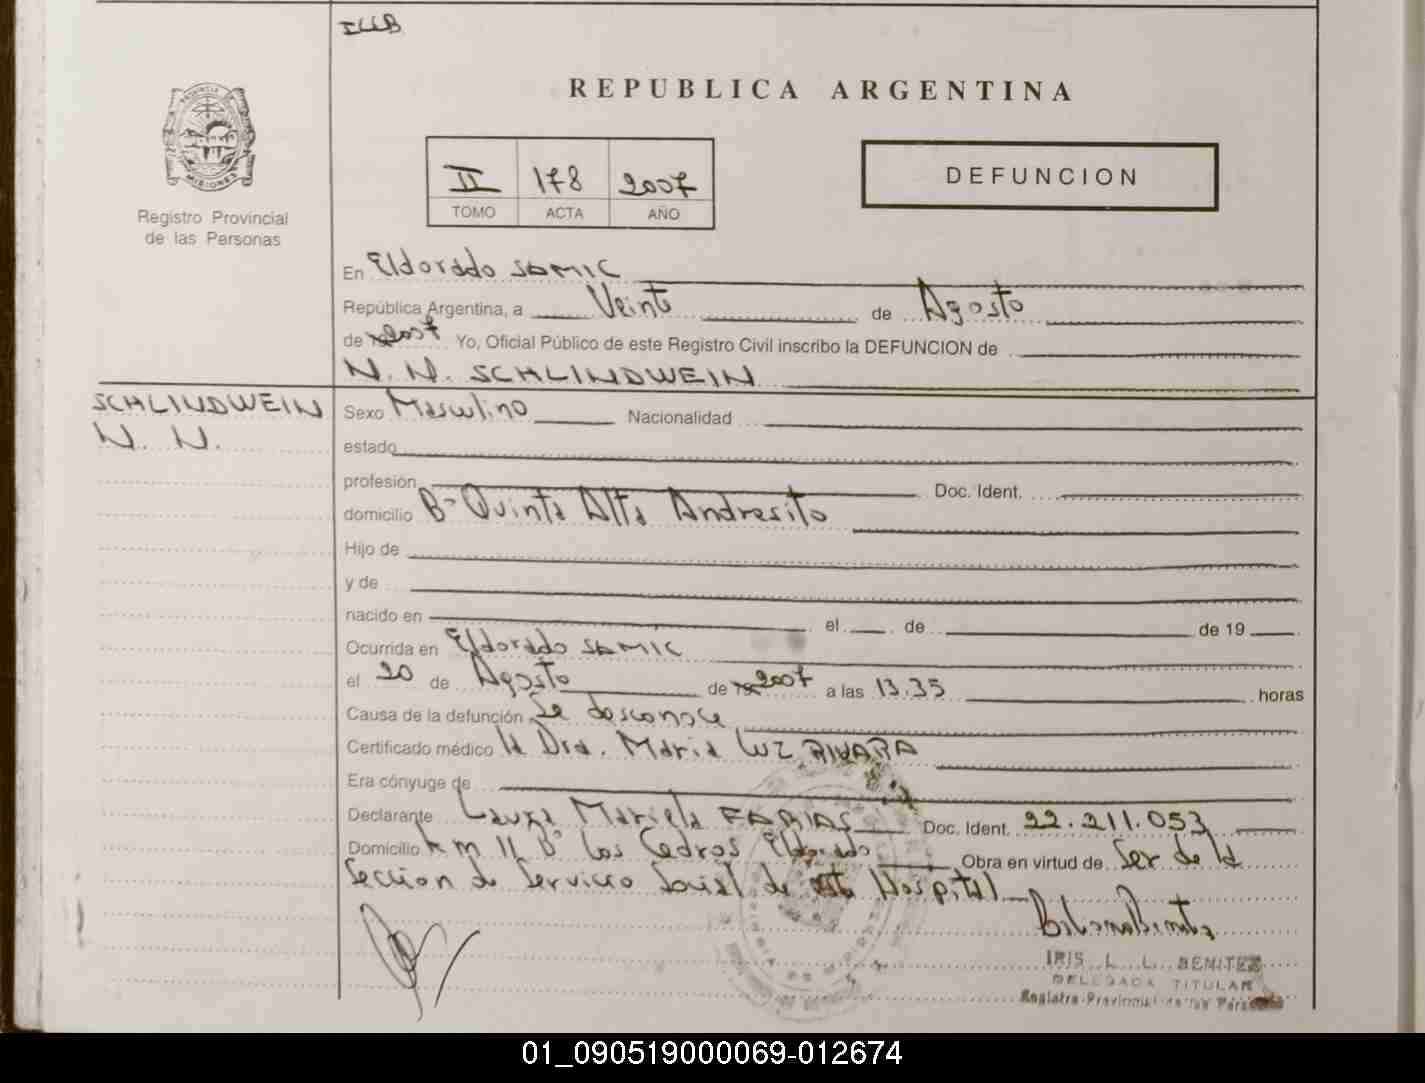 ILLB
REPUBLICA ARGENTINA
II 178 2007
TOMO ACTA AÑO
DEFUNCION
MISIONES
Registro Provincial
de las Personas
En Eldorado SAMIC
República Argentina, a Veinte de Agosto
de 2007 Yo, Oficial Público de este Registro Civil inscribo la DEFUNCION de
N. N. SCHLINDWEIN
SCHLINDWEIN
N. N.
Sexo Masculino Nacionalidad
estado
profesión Doc. Ident.
domicilio Bº Quinta Alta Andresito
Hijo de
y de
nacido en el de de 19
Ocurrida en Eldorado SAMIC
el 20 de Agosto de 2007 a las 13.35 horas
Causa de la defunción Se desconoce
Certificado médico la Dra. Maria Luz RIVARA
Era cónyuge de
Declarante Laura Mariela FARIAS Doc. Ident. 22.211.053
Domicilio Km 11 Bº Los Cedros Eldorado Obra en virtud de Ser de la
Seccion de Servicio Social de este Hospital
IRIS L. L. BENITEZ
DELEGADA TITULAR
Registro Provincial de las Personas
01_090519000069-012674